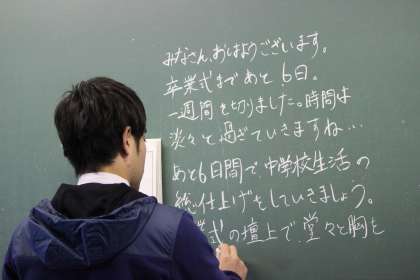 みなさん、おはようございます。
卒業式まであと6日。
一週間を切りました。時間は
淡々と過ぎていきますね…
あと6日間で、中学校生活の
総仕上げをしていきましょう。
式の壇上で、堂々と胸を